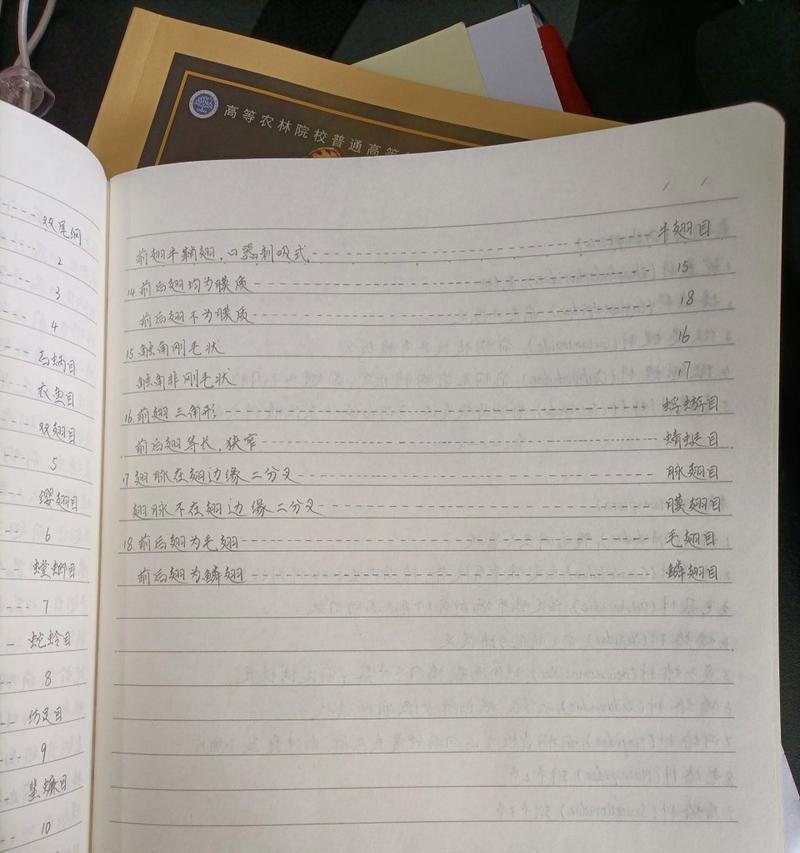 高等农林院校普通高等
双尾纲
2
3
4
鸟虱目
衣鱼目
双翅目
5
缨翅目
6
螳螂目
7
蛇蛉目
8
纺足目
9
蜚蠊目
10
前翅半鞘翅，口器刺吸式 半翅目
14.前后翅均为膜质 15
前后翅不为膜质 18
15.触角刚毛状 16
触角非刚毛状 17
16.前翅三角形 蜉蝣目
前后翅等长，狭窄 蜻蜓目
17.翅脉在翅边缘二分叉 脉翅目
翅脉不在翅边缘二分叉 膜翅目
18.前后翅为毛翅 毛翅目
前后翅为鳞翅 鳞翅目